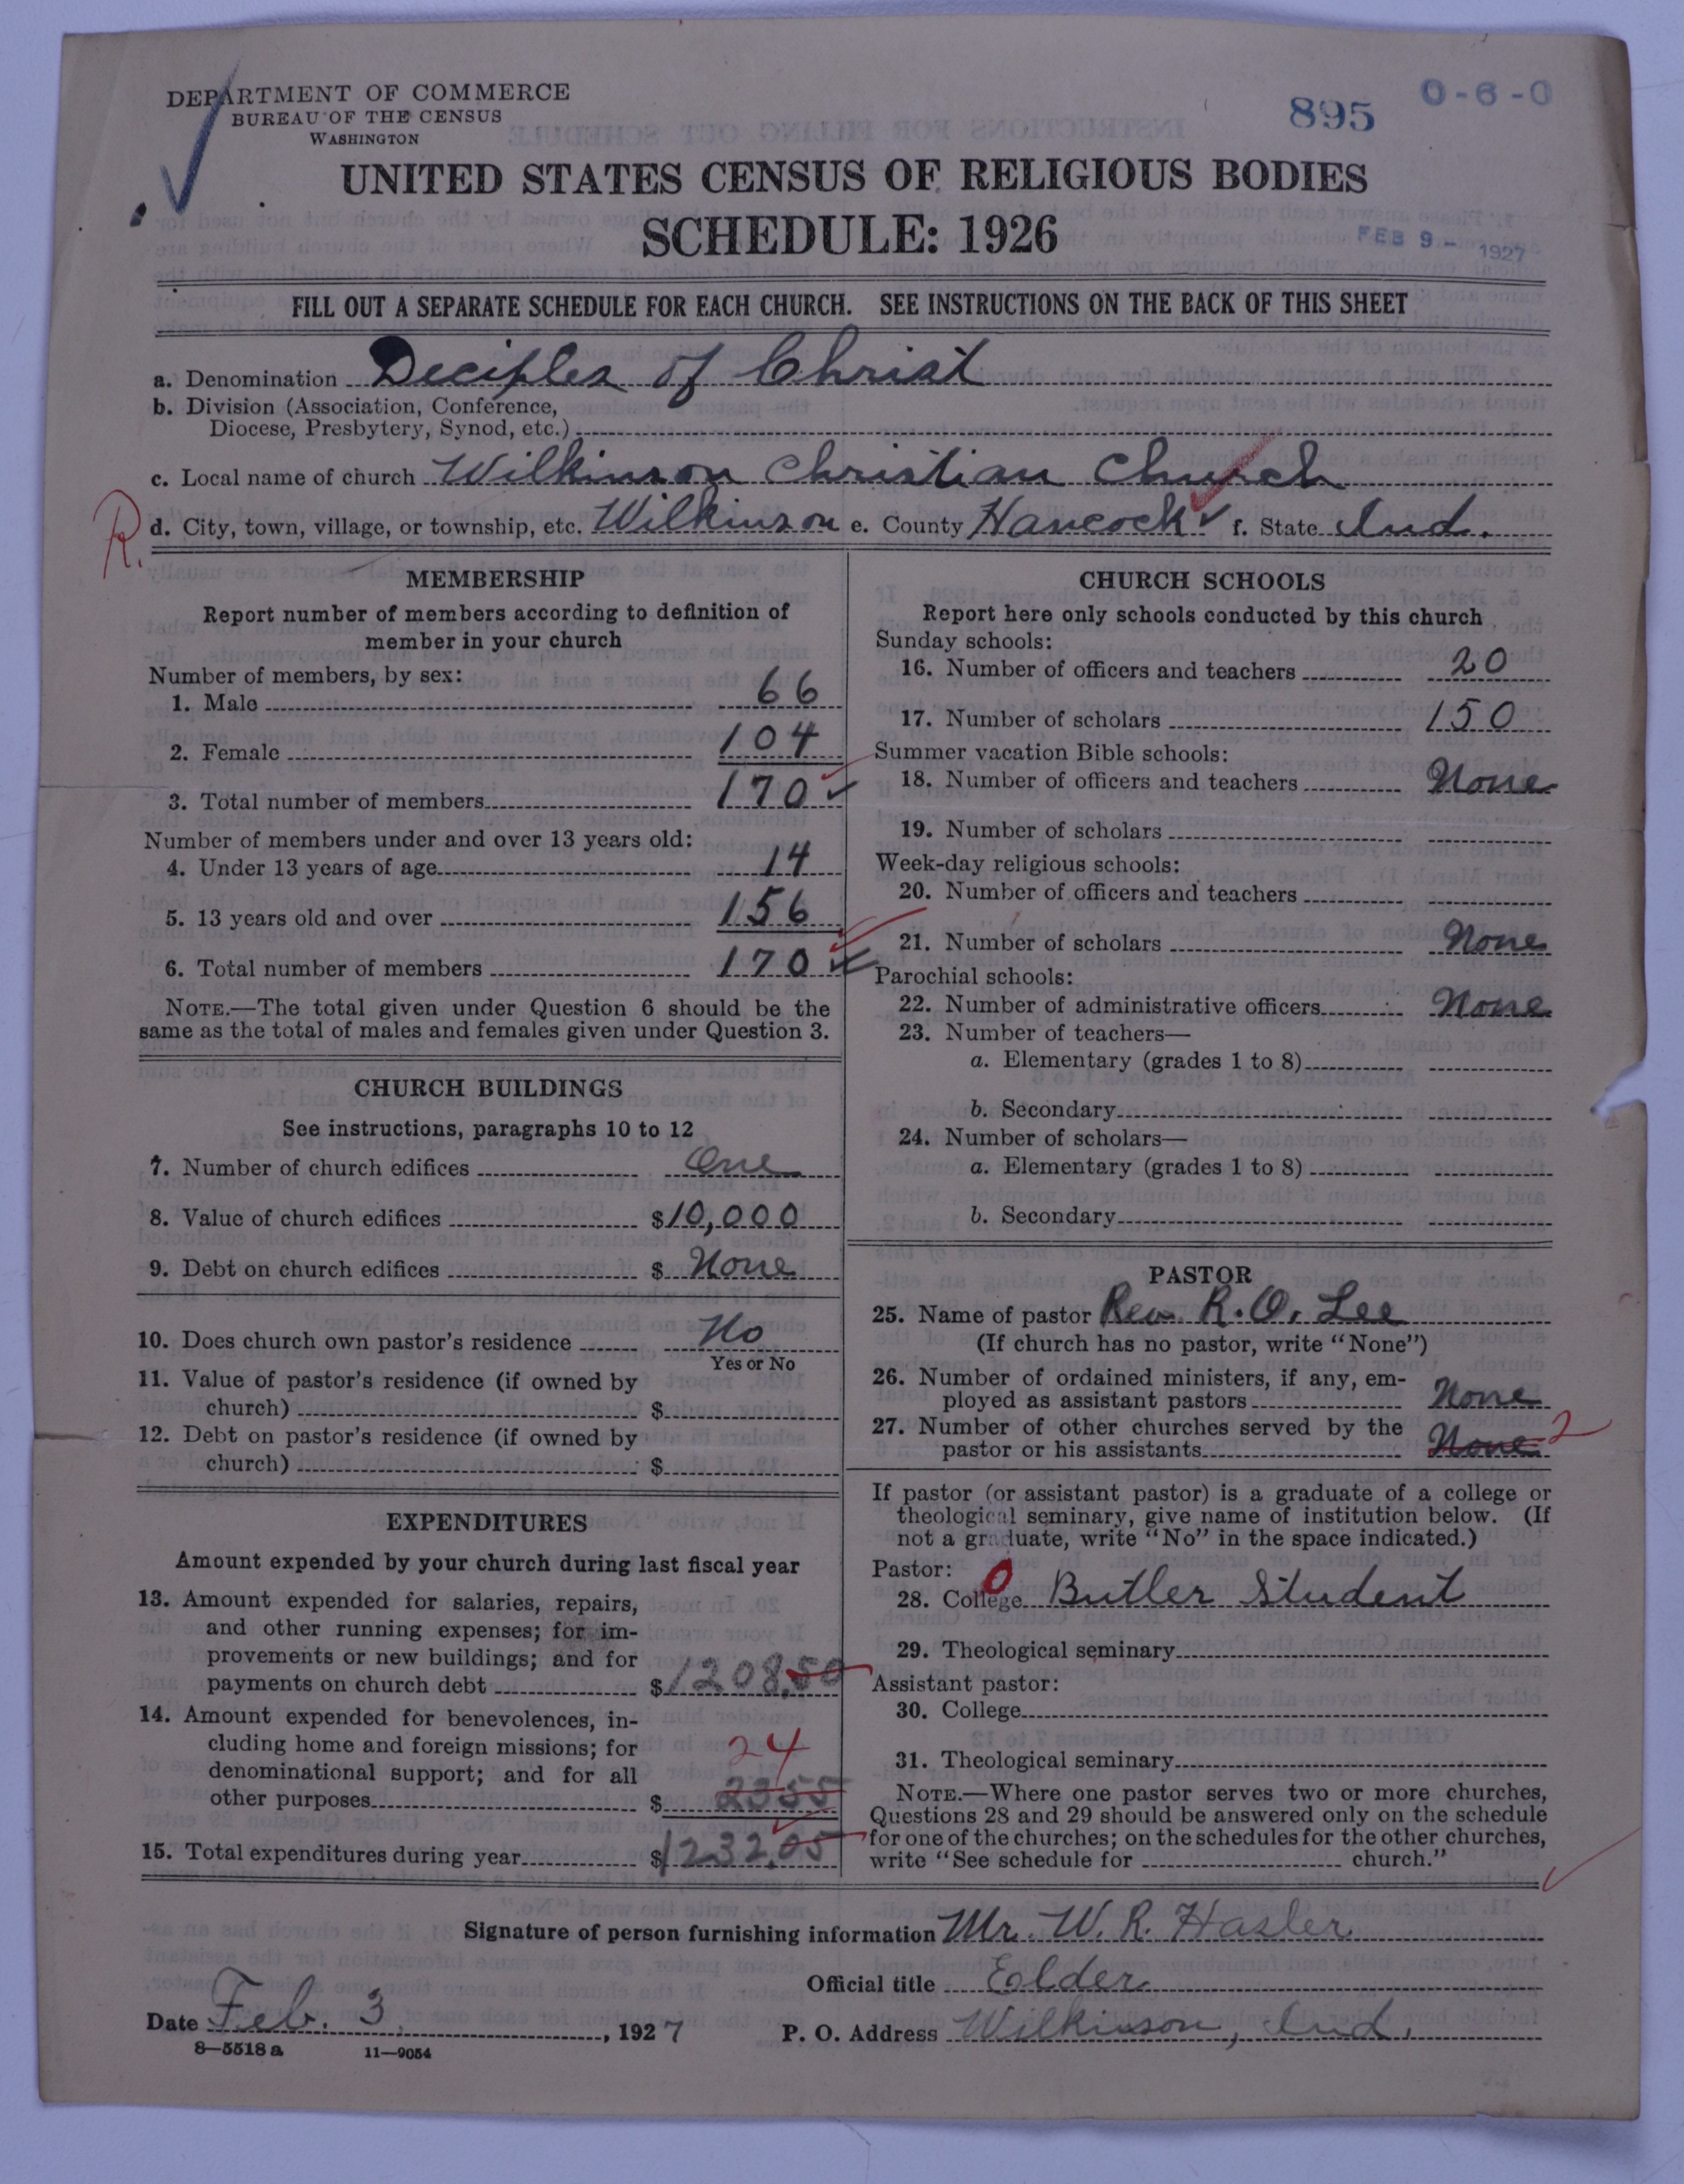 DEPARTMENT OF COMMERCE
BUREAU OF THE CENSUS
WASHINGTON
895
0-6-0
UNITED STATES CENSUS OF RELIGIOUS BODIES
SCHEDULE: 1926
FEB 9 - 1927
FILL OUT A SEPARATE SCHEDULE FOR EACH CHURCH. SEE INSTRUCTIONS ON THE BACK OF THIS SHEET
a. Denomination Deciples of Christ
b. Division (Association, Conference,
Diocese, Presbytery, Synod, etc.)
c. Local name of church Wilkinson Christian Church
R. d. City, town, village, or township, etc. Wilkinson e. County Hancock f. State Ind.
MEMBERSHIP
Report number of members according to definition of
member in your church
Number of members, by sex:
1. Male 66
2. Female 104
3. Total number of members 170
Number of members under and over 13 years old:
4. Under 13 years of age 14
5. 13 years old and over 156
6. Total number of members 170
NOTE.—The total given under Question 6 should be the
same as the total of males and females given under Question 3.
CHURCH BUILDINGS
See instructions, paragraphs 10 to 12
7. Number of church edifices One
8. Value of church edifices $10,000
9. Debt on church edifices $ None
10. Does church own pastor's residence No
Yes or No
11. Value of pastor's residence (if owned by
church) $
12. Debt on pastor's residence (if owned by
church) $
EXPENDITURES
Amount expended by your church during last fiscal year
13. Amount expended for salaries, repairs,
and other running expenses; for im-
provements or new buildings; and for
payments on church debt $1208.50
14. Amount expended for benevolences, in-
cluding home and foreign missions; for
denominational support; and for all 24
other purposes $ 2355
15. Total expenditures during year $1232.05
CHURCH SCHOOLS
Report here only schools conducted by this church
Sunday schools:
16. Number of officers and teachers 20
17. Number of scholars 150
Summer vacation Bible schools:
18. Number of officers and teachers None
19. Number of scholars
Week-day religious schools:
20. Number of officers and teachers
21. Number of scholars None
Parochial schools:
22. Number of administrative officers None
23. Number of teachers—
a. Elementary (grades 1 to 8)
b. Secondary
24. Number of scholars—
a. Elementary (grades 1 to 8)
b. Secondary
PASTOR
25. Name of pastor Rev. R. O. Lee
(If church has no pastor, write "None")
26. Number of ordained ministers, if any, em-
ployed as assistant pastors None
27. Number of other churches served by the
pastor or his assistants None 2
If pastor (or assistant pastor) is a graduate of a college or
theological seminary, give name of institution below. (If
not a graduate, write "No" in the space indicated.)
Pastor: 0
28. College Butler Student
29. Theological seminary
Assistant pastor:
30. College
31. Theological seminary
NOTE.—Where one pastor serves two or more churches,
Questions 28 and 29 should be answered only on the schedule
for one of the churches; on the schedules for the other churches,
write "See schedule for church."
Signature of person furnishing information Mr. W. R. Hasler
Official title Eolder
Date Feb. 3, 1927 P. O. Address Wilkinson, Ind.
8—5518 a 11—9054